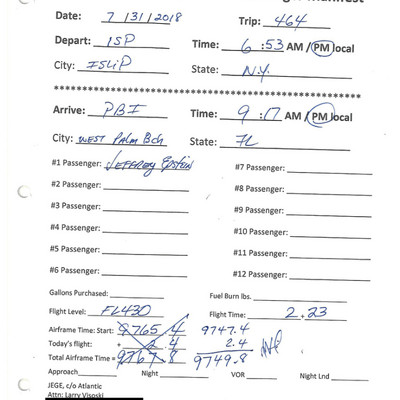 Manifest
Date: 7 / 31 / 2018 Trip: 464
Depart: ISP Time: 6 :53 AM / PM local
City: ISLIP State: N.Y.
****************************************
Arrive: PBI Time: 9 :17 AM / PM local
City: WEST PALM Bch State: FL
#1 Passenger: JEFFREY EPSTEIN #7 Passenger:
#2 Passenger: #8 Passenger:
#3 Passenger: #9 Passenger:
#4 Passenger: #10 Passenger:
#5 Passenger: #11 Passenger:
#6 Passenger: #12 Passenger:
Gallons Purchased: Fuel Burn lbs.
Flight Level: FL430 Flight Time: 2.23
Airframe Time: Start: 9765.4 9747.4
Today's flight: + 2.4 2.4
Total Airframe Time = 9767.8 9749.8
Approach Night VOR Night Lnd
JEGE, c/o Atlantic
Attn: Larry Visoski